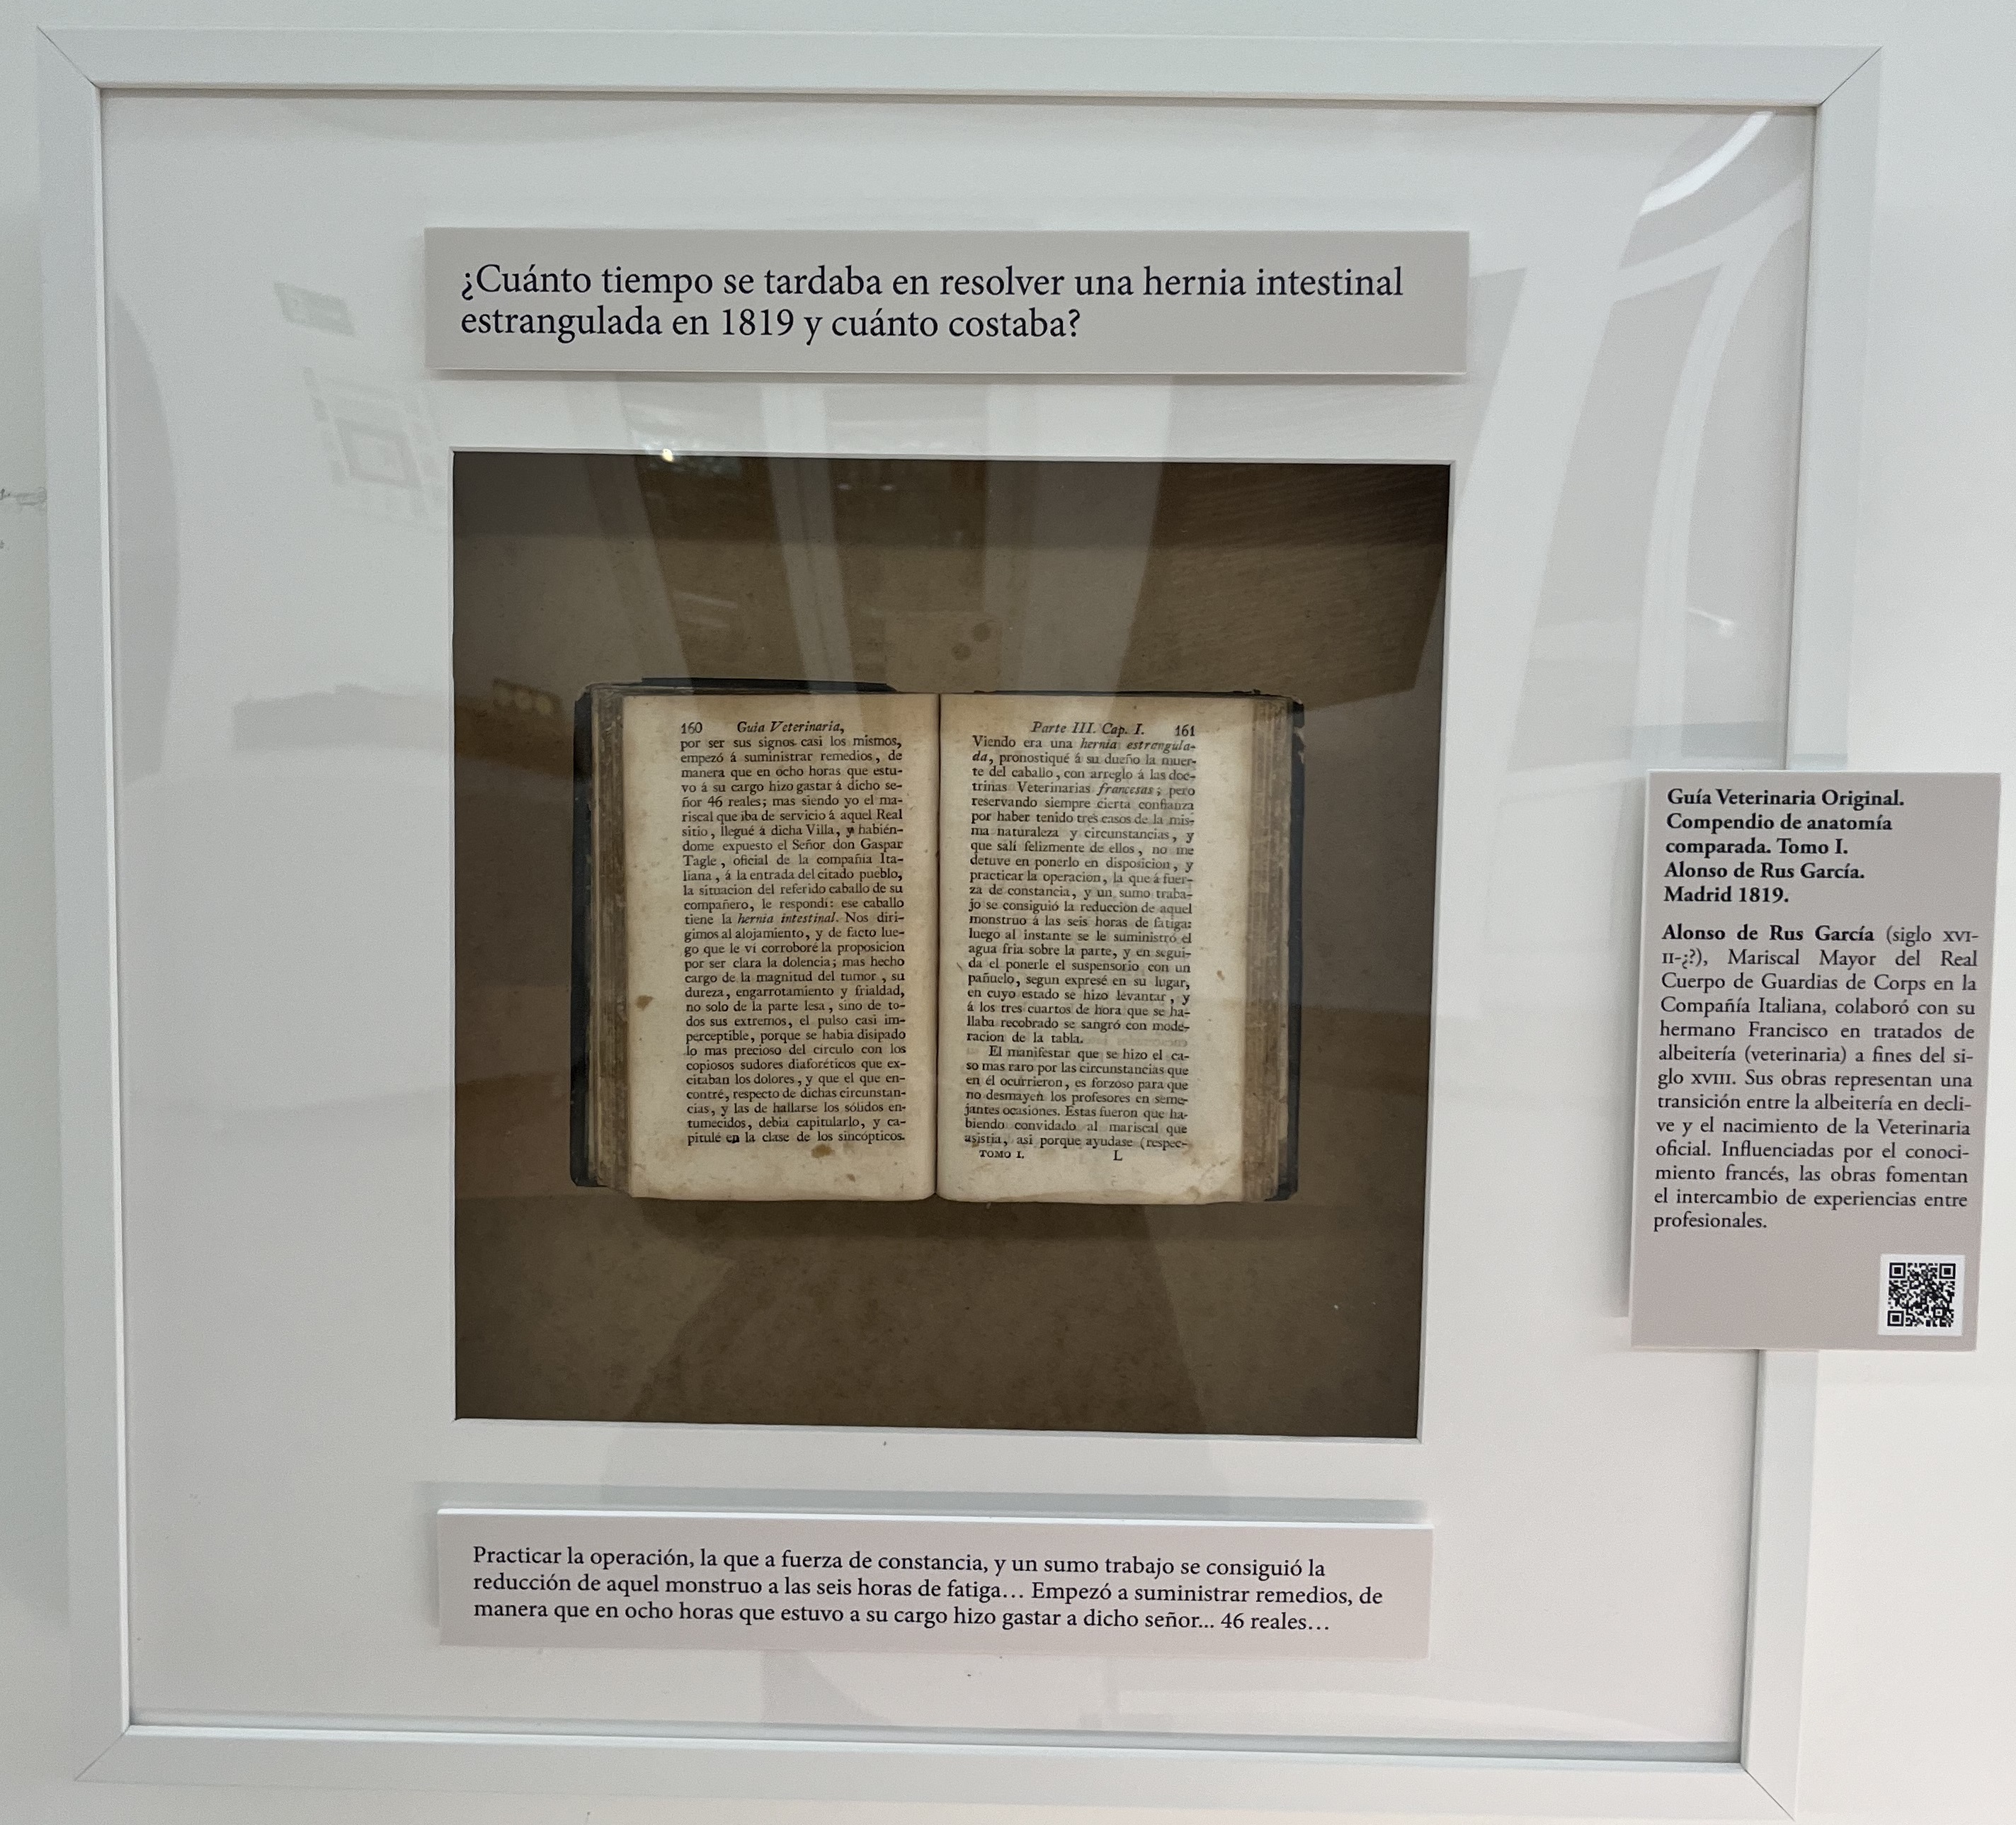 ¿Cuánto tiempo se tardaba en resolver una hernia intestinal
estrangulada en 1819 y cuánto costaba?
160 Guia Veterinaria,
por ser sus signos casi los mismos,
empezó á suministrar remedios, de
manera que en ocho horas que estu-
vo á su cargo hizo gastar á dicho se-
ñor 46 reales; mas siendo yo el ma-
riscal que iba de servicio á aquel Real
sitio, llegué á dicha Villa, y habién-
dome expuesto el Señor don Gaspar
Tagle, oficial de la compañia Ita-
liana, á la entrada del citado pueblo,
la situacion del referido caballo de su
compañero, le respondí: ese caballo
tiene la hernia intestinal. Nos diri-
gimos al alojamiento, y de facto lue-
go que le ví corroboré la proposicion
por ser clara la dolencia; mas hecho
cargo de la magnitud del tumor, su
dureza, engarrotamiento y frialdad,
no solo de la parte lesa, sino de to-
dos sus extremos, el pulso casi im-
perceptible, porque se habia disipado
lo mas precioso del círculo con los
copiosos sudores diaforéticos que ex-
citaban los dolores, y que el que en-
contré, respecto de dichas circunstan-
cias, y las de hallarse los sólidos en-
tumecidos, debia capitularlo, y ca-
pitulé en la clase de los sincópticos.
Parte III. Cap. I. 161
Viendo era una hernia estrangula-
da, pronostiqué á su dueño la muer-
te del caballo, con arreglo á las doc-
trinas Veterinarias francesas; pero
reservando siempre cierta confianza
por haber tenido tres casos de la mis-
ma naturaleza y circunstancias, y
que salí felizmente de ellos, no me
detuve en ponerlo en disposicion, y
practicar la operacion, la que á fuer-
za de constancia, y un sumo traba-
jo se consiguió la reduccion de aquel
monstruo á las seis horas de fatiga:
luego al instante se le suministró el
agua fria sobre la parte, y en segui-
da el ponerle el suspensorio con un
pañuelo, segun expresé en su lugar,
en cuyo estado se hizo levantar, y
á los tres cuartos de hora que se ha-
llaba recobrado se sangró con mode-
racion de la tabla.
El manifestar que se hizo el ca-
so mas raro por las circunstancias que
en él ocurrieron, es forzoso para que
no desmayen los profesores en seme-
jantes ocasiones. Estas fueron que ha-
biendo convidado al mariscal que
asistia, asi porque ayudase (respec-
TOMO I. L
Guía Veterinaria Original.
Compendio de anatomía
comparada. Tomo I.
Alonso de Rus García.
Madrid 1819.
Alonso de Rus García (siglo XVI-
II-¿?), Mariscal Mayor del Real
Cuerpo de Guardias de Corps en la
Compañía Italiana, colaboró con su
hermano Francisco en tratados de
albeitería (veterinaria) a fines del si-
glo XVIII. Sus obras representan una
transición entre la albeitería en decli-
ve y el nacimiento de la Veterinaria
oficial. Influenciadas por el conoci-
miento francés, las obras fomentan
el intercambio de experiencias entre
profesionales.
Practicar la operación, la que a fuerza de constancia, y un sumo trabajo se consiguió la
reducción de aquel monstruo a las seis horas de fatiga… Empezó a suministrar remedios, de
manera que en ocho horas que estuvo a su cargo hizo gastar a dicho señor... 46 reales…